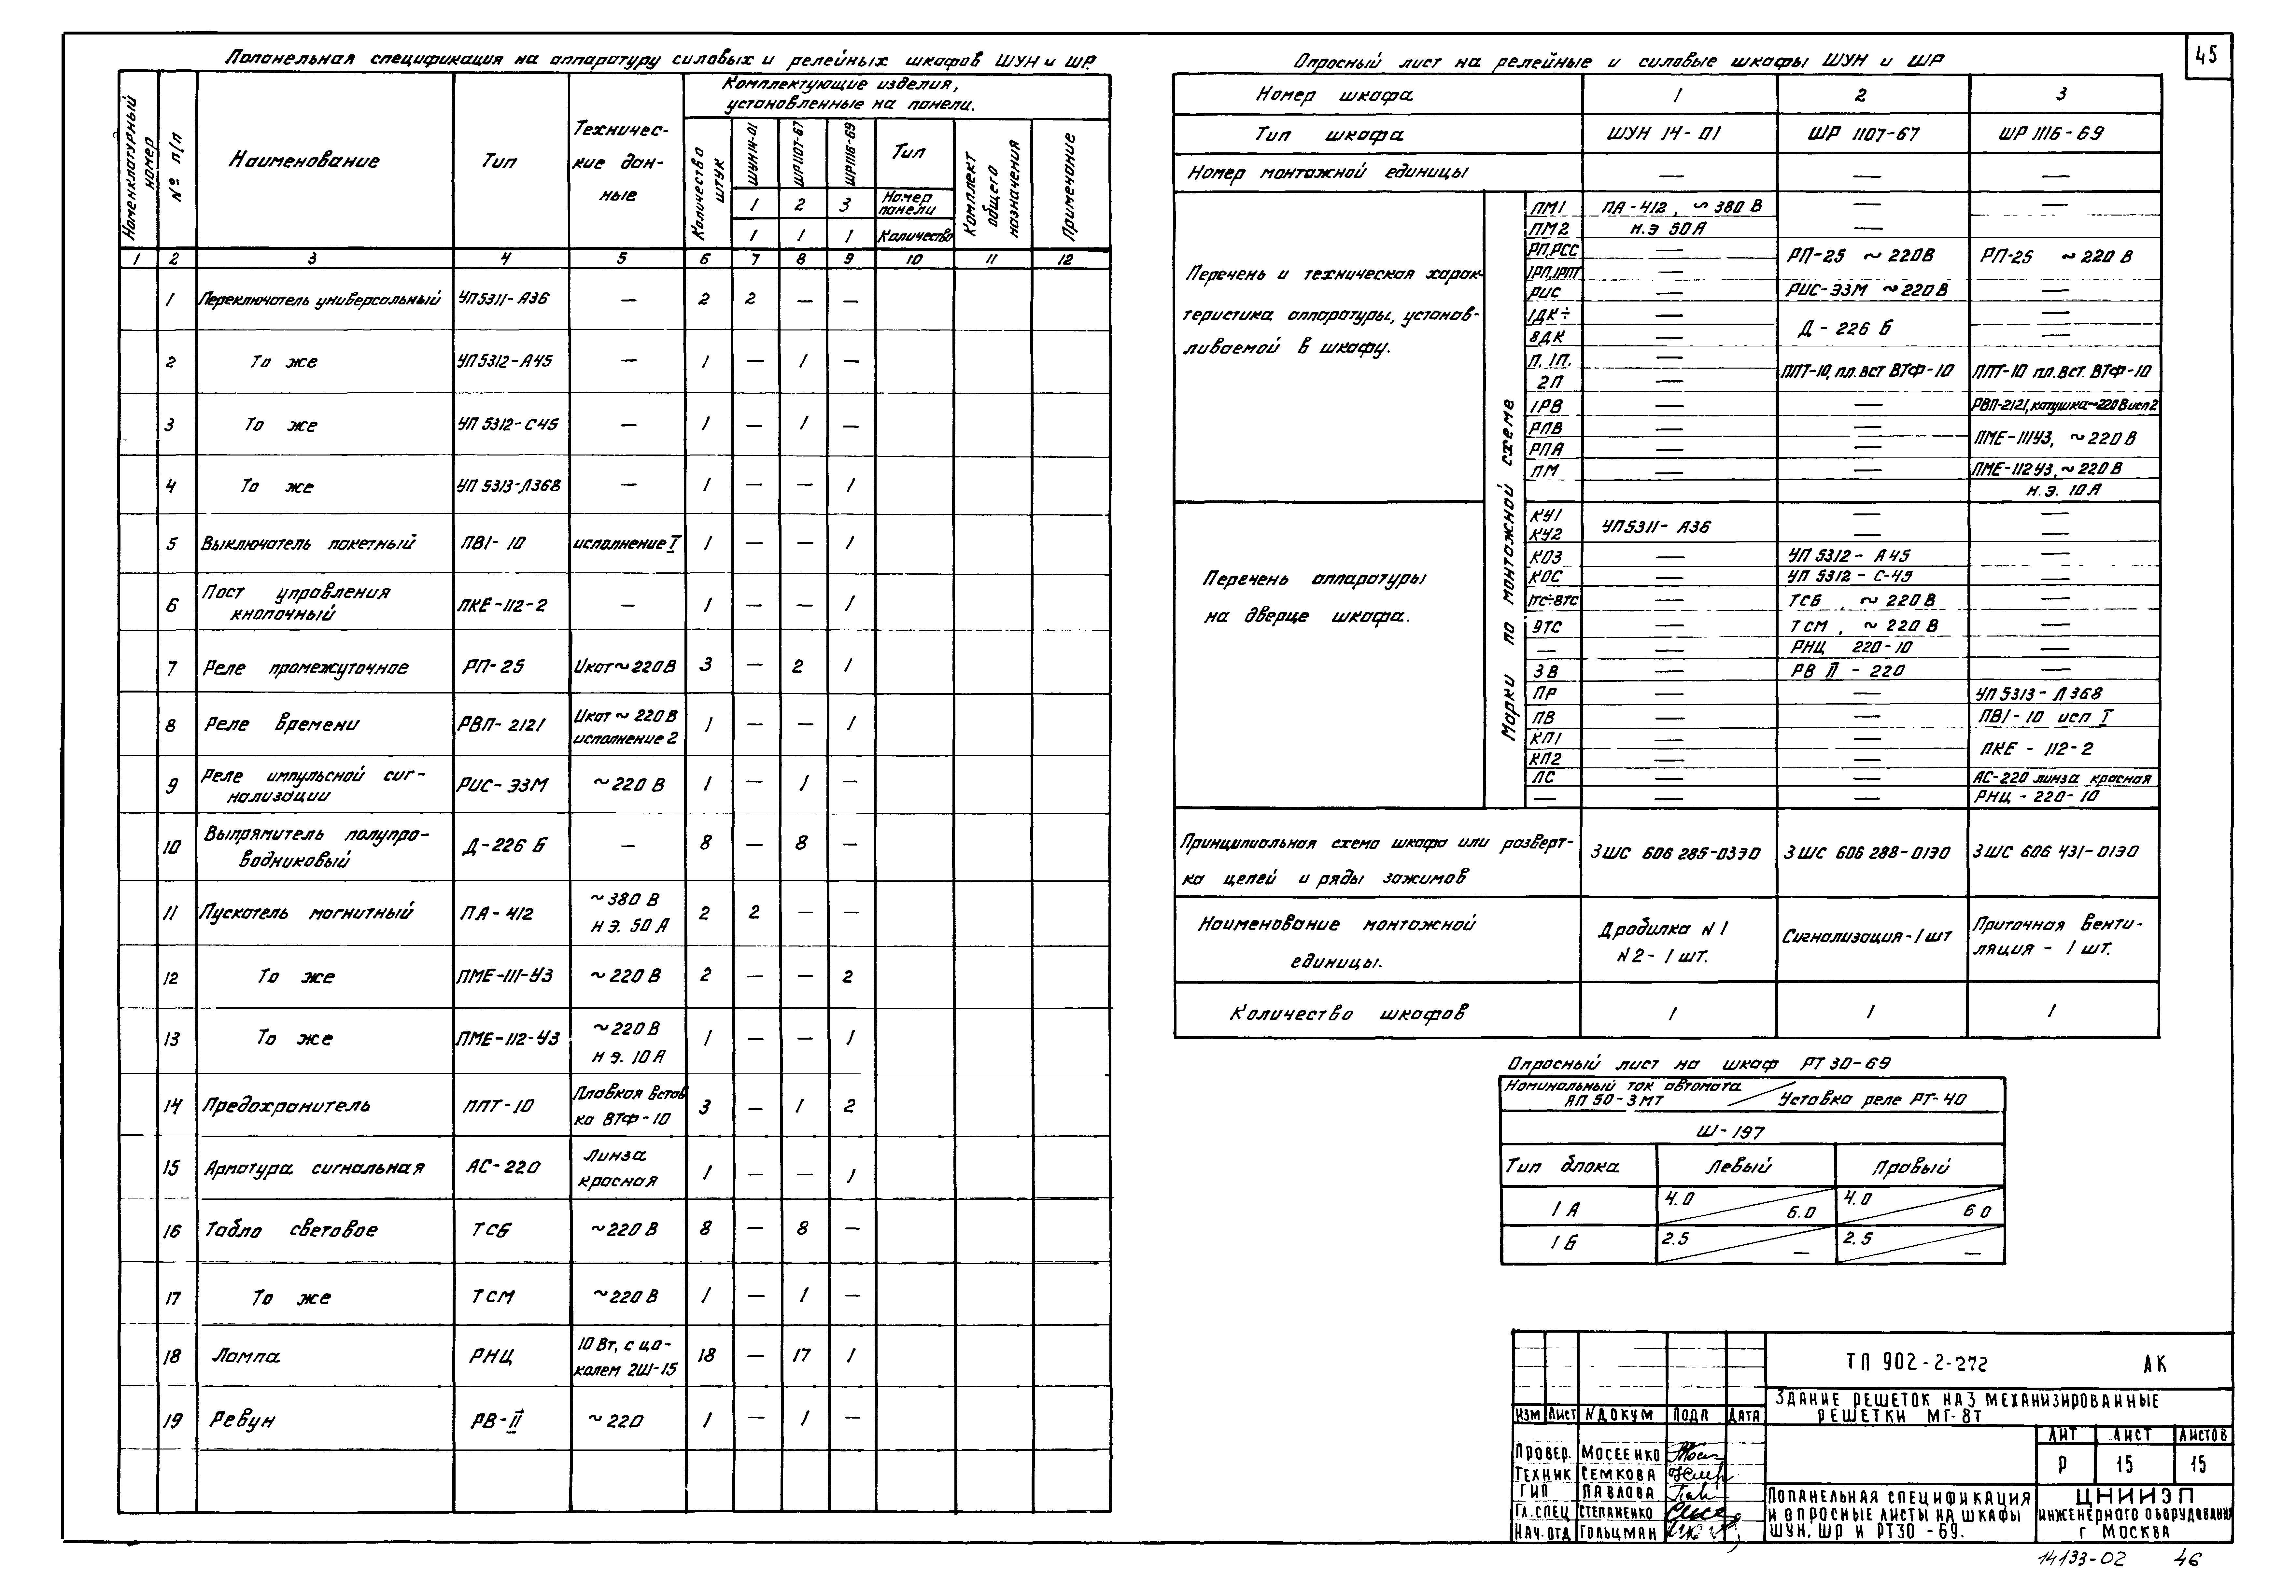 45
Попанельная спецификация на аппаратуру силовых и релейных шкафов ШУН и ШР.
Номенклатурный номер
№ п/п
Наименование
Тип
Техничес-
кие дан-
ные
Количество штук
Комплектующие изделия,
установленные на панели.
ШУН 14-01
ШР 1107-67
ШР 1116-69
Тип
Комплект общего назначения
Примечание
1 2 3 Номер панели
1 1 1 Количество
1 2 3 4 5 6 7 8 9 10 11 12
1 Переключатель универсальный УП5311-А36 — 2 2 — —
2 То же УП5312-А45 — 1 — 1 —
3 То же УП 5312-С45 — 1 — 1 —
4 То же УП 5313-Л368 — 1 — — 1
5 Выключатель пакетный ПВ1-10 исполнение I 1 — — 1
6 Пост управления
кнопочный ПКЕ-112-2 — 1 — — 1
7 Реле промежуточное РП-25 Uкат ~ 220 В 3 — 2 1
8 Реле времени РВП-2121 Uкат ~ 220 В
исполнение 2 1 — — 1
9 Реле импульсной сиг-
нализации РИС-Э3М ~ 220 В 1 — 1 —
10 Выпрямитель полупро-
водниковый Д-226 Б — 8 — 8 —
11 Пускатель магнитный ПА-412 ~ 380 В
н э. 50 А 2 2 — —
12 То же ПМЕ-111-У3 ~ 220 В 2 — — 2
13 То же ПМЕ-112-У3 ~ 220 В
н э. 10 А 1 — — 1
14 Предохранитель ППТ-10 Плавкая встав
ка ВТФ-10 3 — 1 2
15 Арматура сигнальная АС-220 линза
красная 1 — — 1
16 Табло световое ТСБ ~ 220 В 8 — 8 —
17 То же ТСМ ~ 220 В 1 — 1 —
18 Лампа РНЦ 10 Вт, с цо-
колем 2Ш-15 18 — 17 1
19 Ревун РВ-II ~ 220 1 — 1 —
Опросный лист на релейные и силовые шкафы ШУН и ШР
Номер шкафа 1 2 3
Тип шкафа ШУН 14-01 ШР 1107-67 ШР 1116-69
Номер монтажной единицы — — —
Перечень и техническая харак-
теристика аппаратуры, устанав-
ливаемой в шкафу.
Марки по монтажной схеме
ПМ1 ПА-412, ~ 380 В — —
ПМ2 н.э 50 А —
РП,РСС — РП-25 ~ 220В РП-25 ~ 220 В
1РП,1РПТ —
РИС — РИС-Э3М ~ 220 В —
1ДК÷ — Д-226 Б —
8ДК — —
П, 1П, — ППТ-10, пл. вст ВТФ-10 ППТ-10 пл. вст. ВТФ-10
2П —
1РВ — — РВП-2121, катушка ~220 В исп 2
РПВ — — ПМЕ-111У3, ~ 220 В
РПА — —
ПМ — — ПМЕ-112 У3, ~ 220 В
н. э. 10 А
Перечень аппаратуры
на дверце шкафа.
КУ1 УП5311-А36 — —
КУ2 — —
КОЗ — УП 5312-А45 —
КОС — УП 5312-С-45 —
1ТС÷8ТС — ТСБ, ~ 220 В —
9ТС — ТСМ, ~ 220 В —
— — РНЦ 220-10 —
ЗВ — РВ II - 220 —
ПР — — УП 5313-Л 368
ПВ — — ПВ1-10 исп I
КП1 — — ПКЕ - 112-2
КП2 — —
ЛС — — АС-220 линза красная
— — — РНЦ-220-10
Принципиальная схема шкафа или разверт-
ка цепей и ряды зажимов
3ШС 606 285-03Э0 3ШС 606 288-01Э0 3ШС 606 431-01Э0
Наименование монтажной
единицы.
Дробилка N 1
N 2 - 1 шт.
Сигнализация - 1 шт
Приточная венти-
ляция - 1 шт.
Количество шкафов 1 1 1
Опросный лист на шкаф РТ 30-69
Номинальный ток автомата
АП 50-3МТ / Уставка реле РТ-40
Ш-197
Тип блока Левый Правый
1 А 4.0 6.0 4.0 6 0
1 Б 2.5 — 2.5 —
ТП 902-2-272 АК
Здание решеток на 3 механизированные
решетки МГ-8т
Изм Лист N докум Подп Дата
Лит Лист Листов
Р 15 15
Провер. Мосеенко
Техник Семкова
ГИП Павлова
Гл. спец Степаненко
Нач. отд Гольцман
Попанельная спецификация
и опросные листы на шкафы
ШУН, ШР и РТ30-69.
ЦНИИЭП
инженерного оборудования
г Москва
14133-02 46